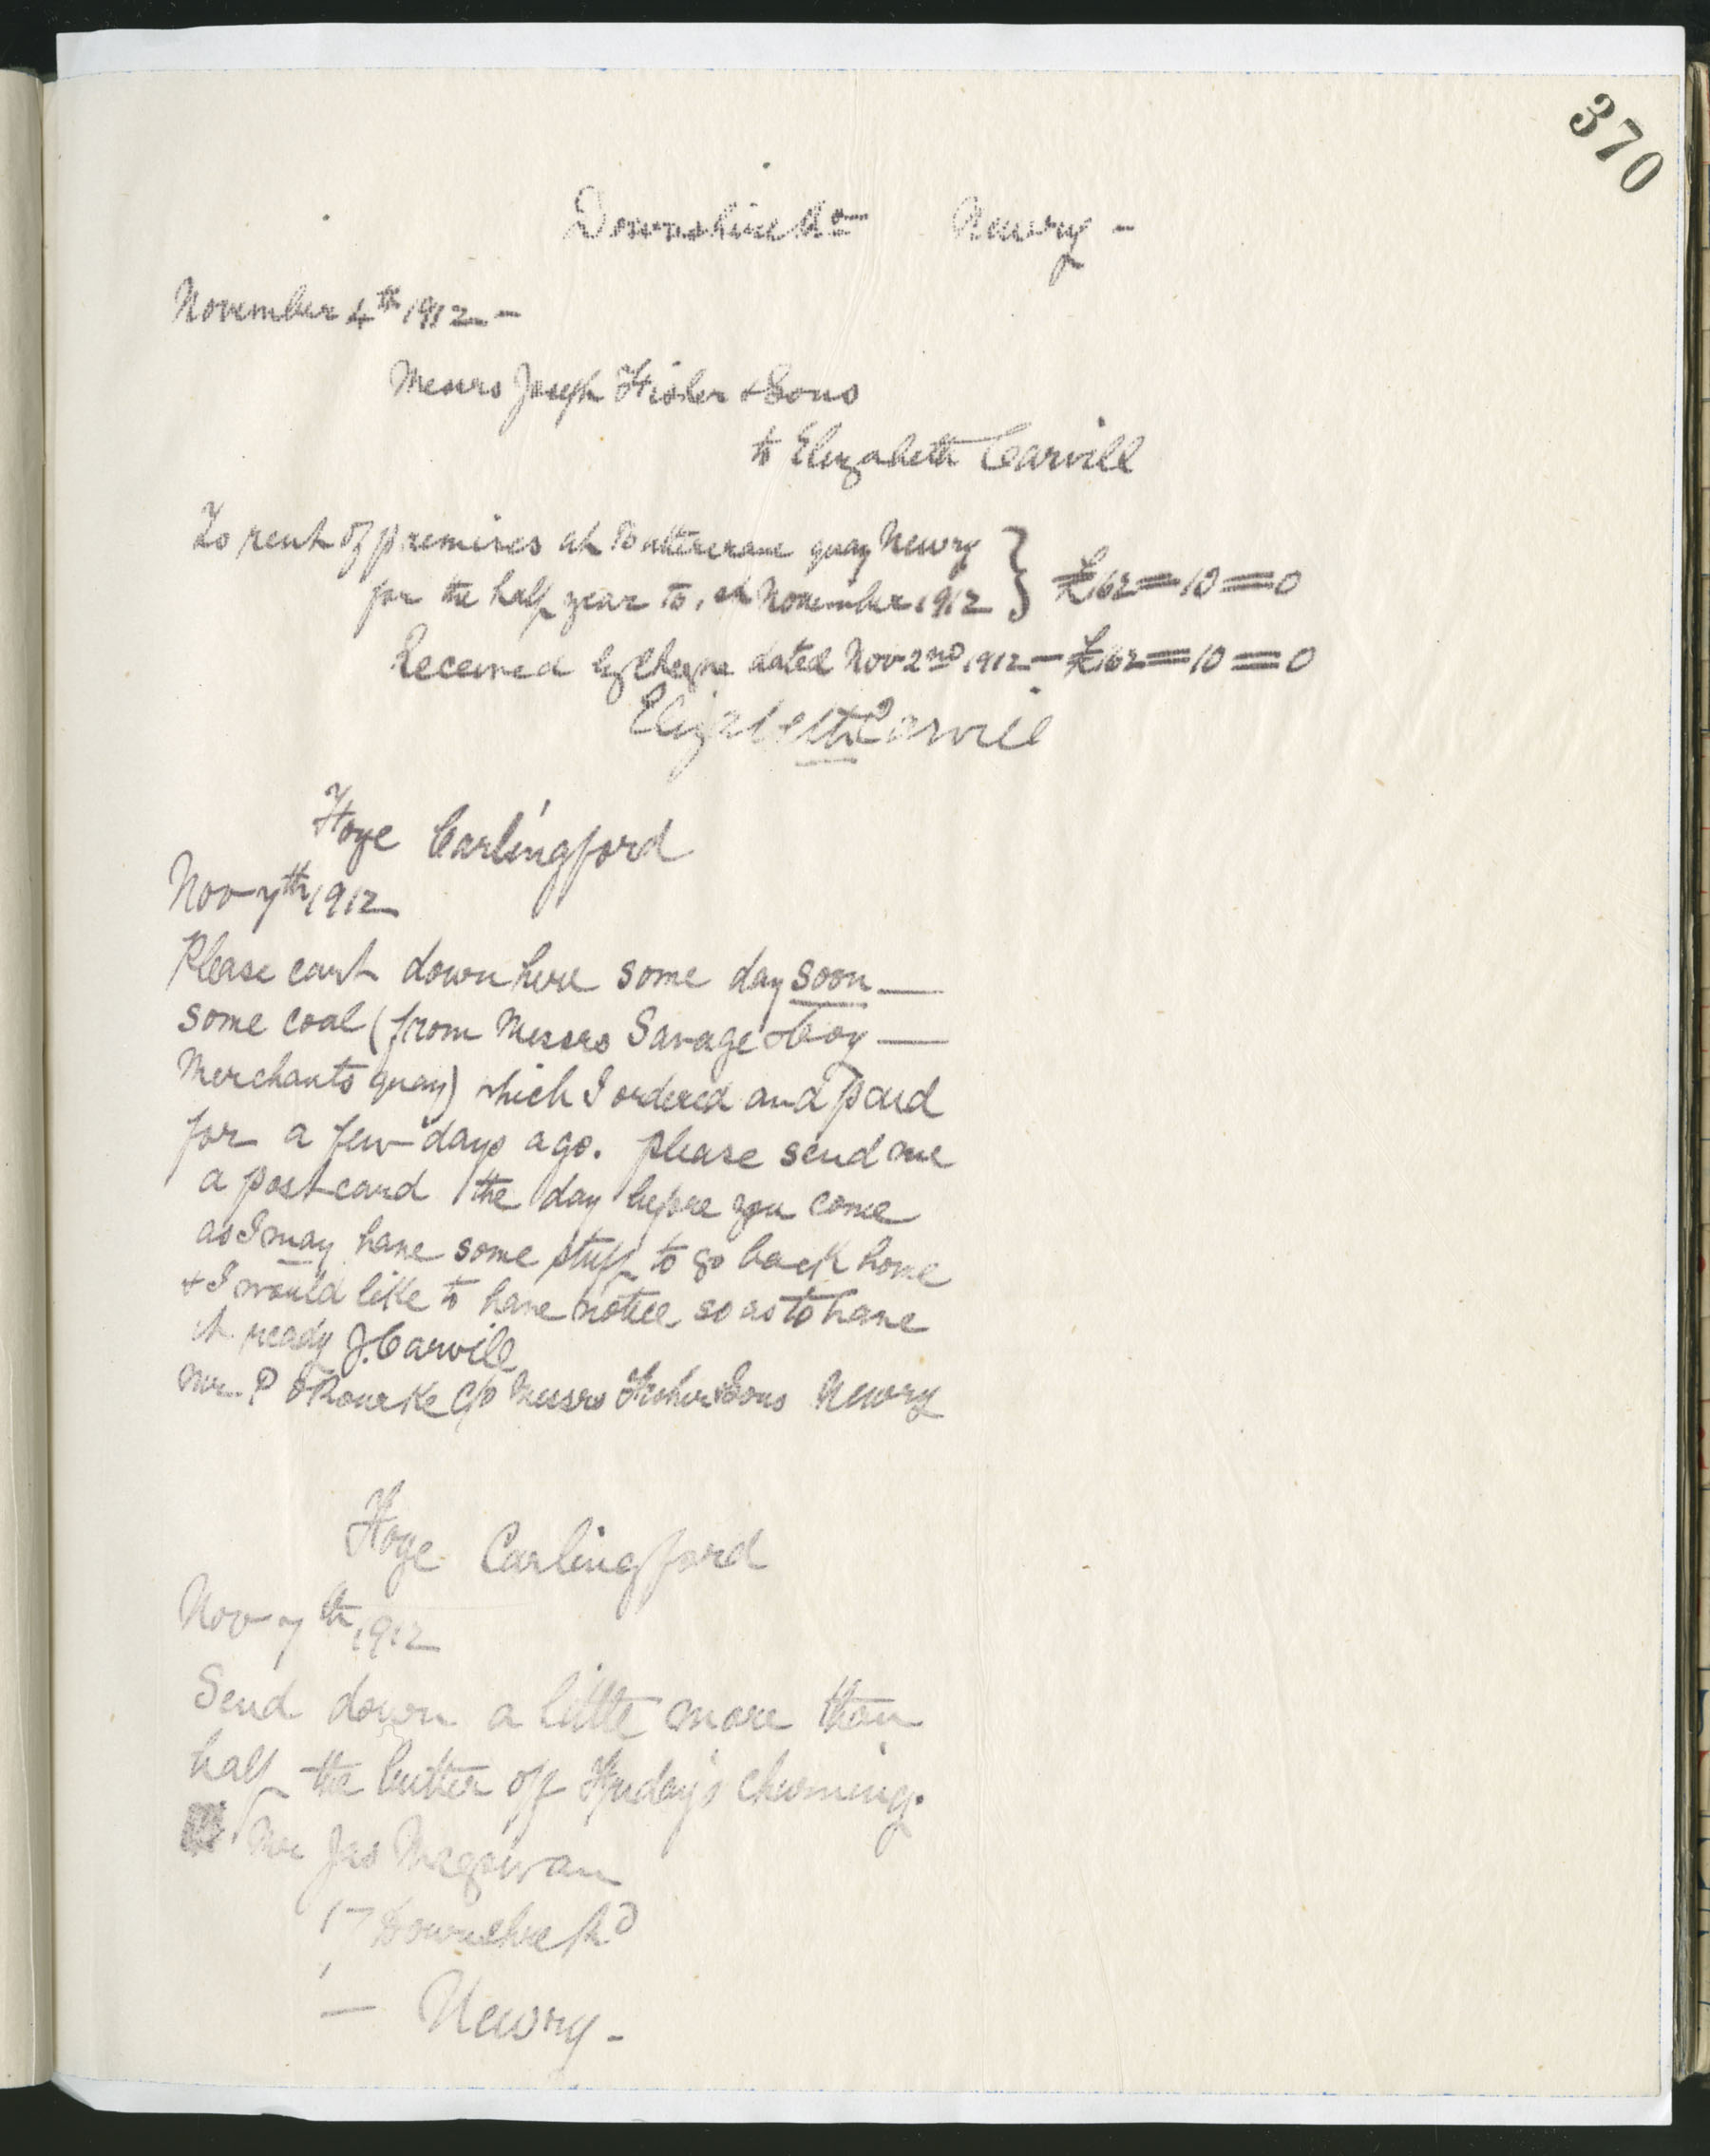 370
Downshire Rd Newry -
November 4th 1912 -
Messrs Joseph Fisher & Sons
to Elizabeth Carvill
To rent of premises at Buttercrane quay Newry
for the half year to 1st November 1912 } £62=10=0
Received by cheque dated Nov 2nd 1912 - £62=10=0
Elizabeth Carvill
Carlingford
Nov 7th 1912
Please cart down here some day soon —
some coal (from Messrs Savage & Coy —
Merchants quay) which I ordered and paid
for a few days ago. please send me
a postcard the day before you come
as I may have some stuff to go back home
& I would like to have notice so as to have
it ready J. Carvill
Mr. P O'Rourke C/o Messrs Fisher & Sons Newry
Carlingford
Nov 7th 1912
Send down a little more than
half the butter off Friday's churning.
Mr Jas Magowan
17 Downshire Rd
— Newry -